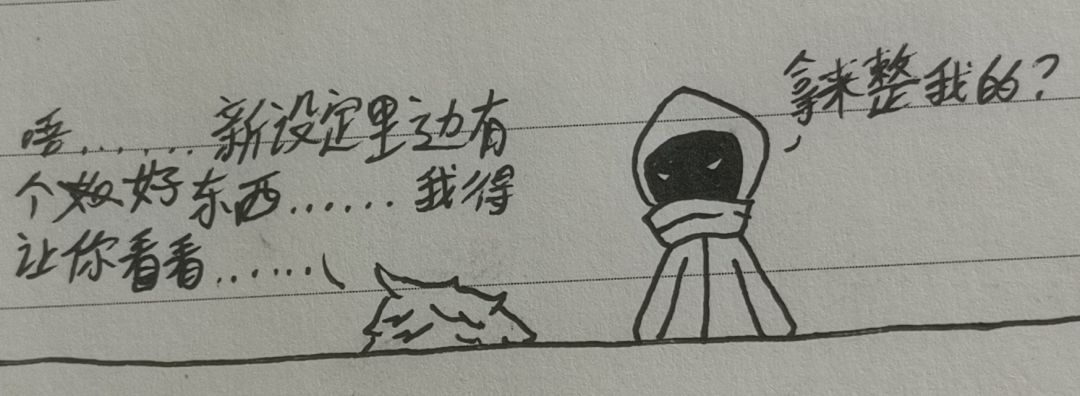 唔……新设定里边有
个好东西……我得
让你看看……
拿来整我的？